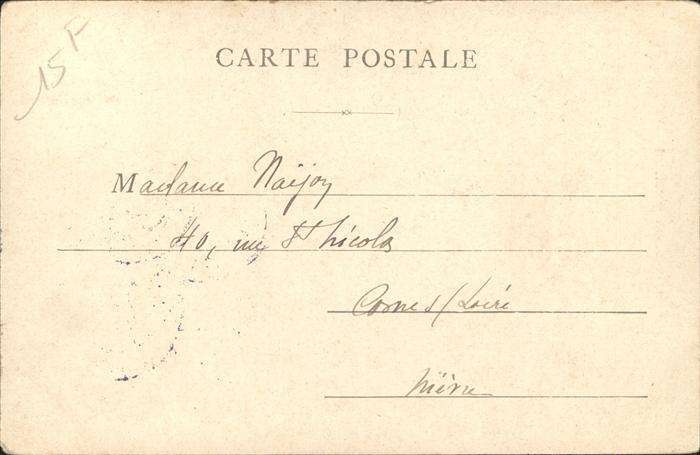 15 F
CARTE POSTALE
Madame Naijon
40, rue St Nicolas
Cosne s/ Loire
Nièvre